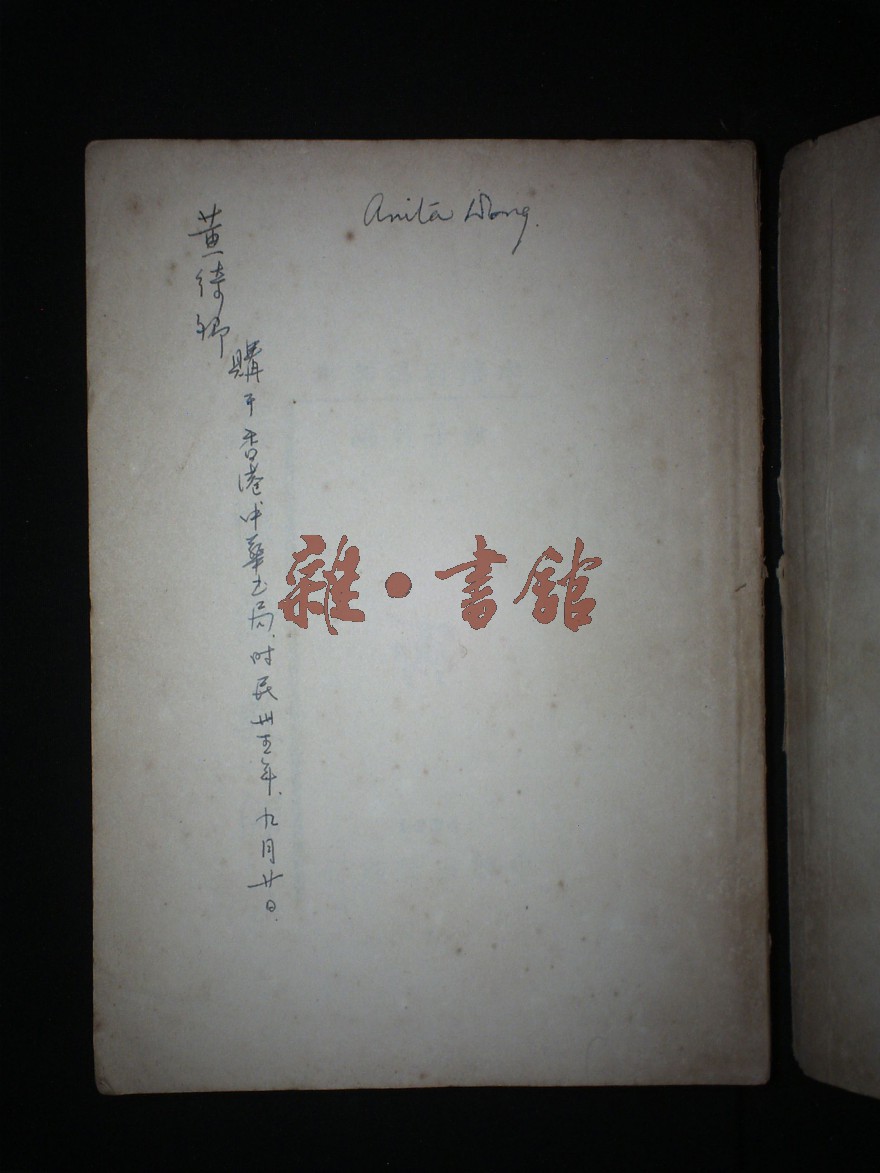 Anita Wong
黄绮卿
購于香港中華书局.时民卅五年.九月廿日.
雜·書館